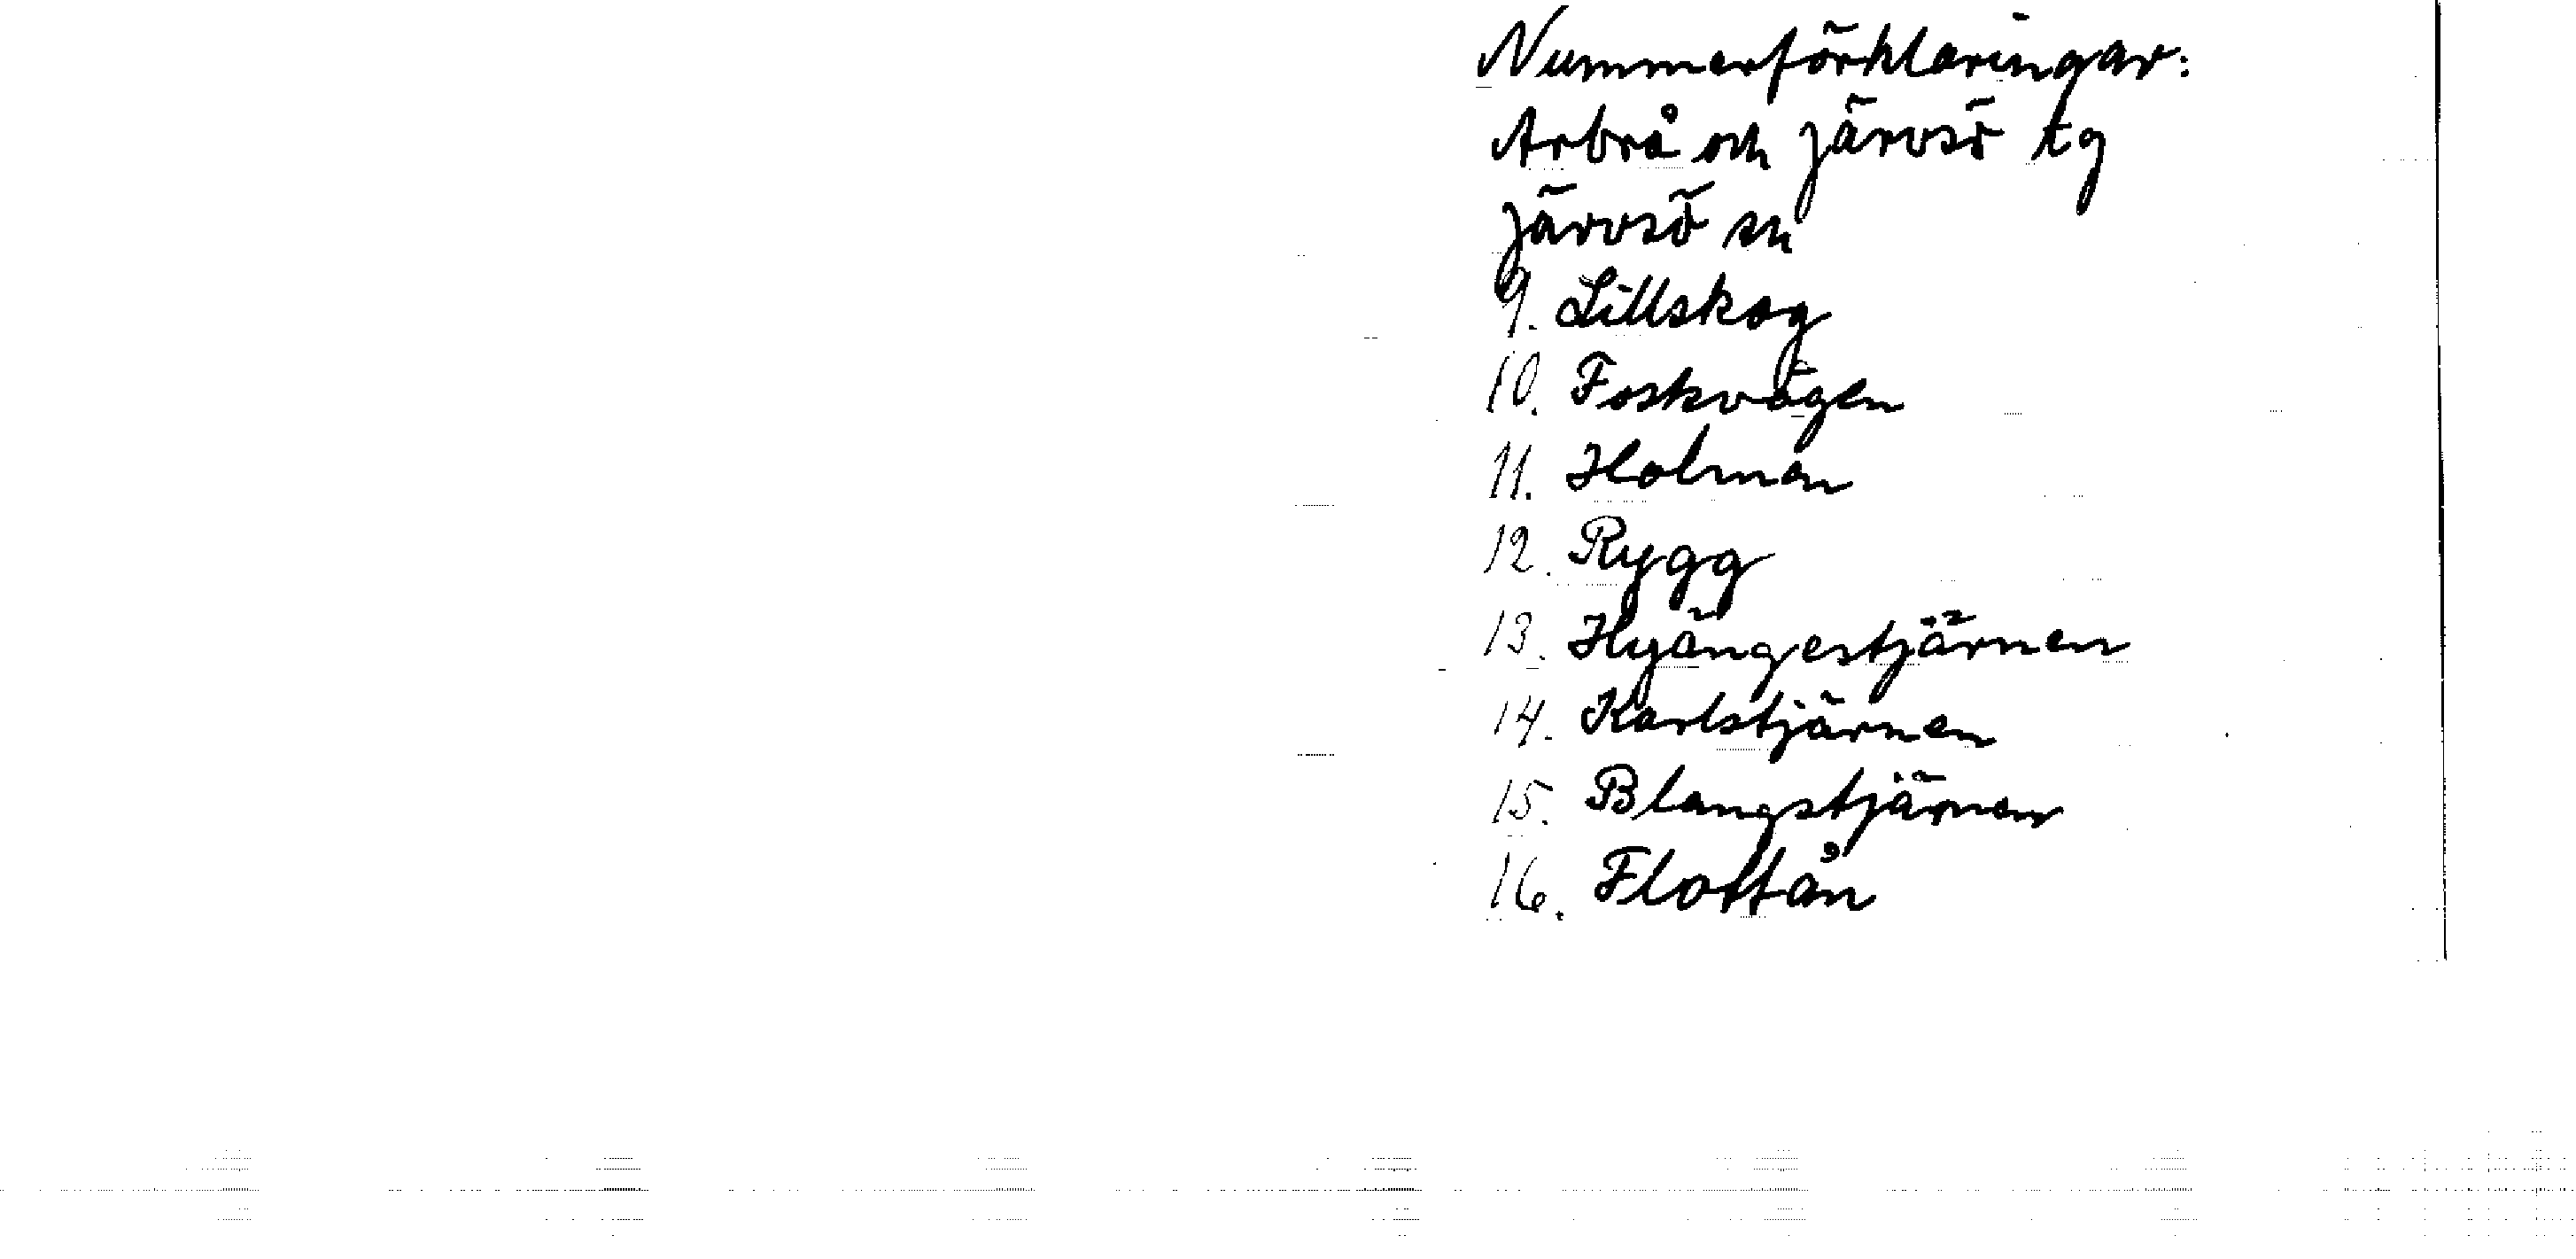 Nummerförklaringar:
Arbrå och Järvsö tg
Järvsö sn
9. Lillskog
10. Foskvågen
11. Holman
12. Rygg
13. Hyängestjärnen
14. Karlstjärnen
15. Blangstjärnen
16. Flottån